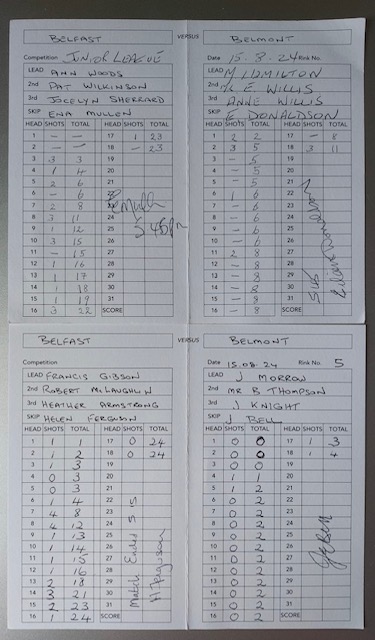 BELFAST VERSUS BELMONT
Competition JUNIOR LEAGUE
LEAD ANN WOODS
2nd PAT WILKINSON
3rd JOCELYN SHERRARD
SKIP ENA MULLEN
HEAD SHOTS TOTAL HEAD SHOTS TOTAL
1 — — 17 1 23
2 — — 18 - 23
3 3 3 19
4 1 4 20
5 2 6 21
6 - 6 22
7 2 8 23
8 3 11 24
9 1 12 25
10 3 15 26
11 - 15 27
12 1 16 28
13 1 17 29
14 1 18 30
15 1 19 31
16 3 22 SCORE
E Mullen
5.45pm
Date 15.8.24 Rink No.
LEAD M I DMILTON
2nd E. WILLIS
3rd ANNE WILLIS
SKIP E DONALDSON
HEAD SHOTS TOTAL HEAD SHOTS TOTAL
1 2 2 17 - 8
2 3 5 18 3 11
3 - 5 19
4 - 5 20
5 - 5 21
6 1 6 22
7 - 6 23
8 - 6 24
9 - 6 25
10 - 6 26
11 2 8 27
12 - 8 28
13 - 8 29
14 - 8 30
15 - 8 31
16 - 8 SCORE
BELFAST VERSUS BELMONT
Competition
LEAD FRANCIS GIBSON
2nd ROBERT McLAUGHLIN
3rd HEATHER ARMSTRONG
SKIP HELEN FERGUSON
HEAD SHOTS TOTAL HEAD SHOTS TOTAL
1 1 1 17 0 24
2 1 2 18 0 24
3 1 3 19
4 0 3 20
5 0 3 21
6 1 4 22
7 4 8 23
8 4 12 24
9 1 13 25
10 1 14 26
11 1 15 27
12 1 16 28
13 2 18 29
14 3 21 30
15 2 23 31
16 1 24 SCORE
Match Ended 5 15
H Ferguson
Date 15.08.24 Rink No. 5
LEAD J MORROW
2nd MR B THOMPSON
3rd J KNIGHT
SKIP J BELL
HEAD SHOTS TOTAL HEAD SHOTS TOTAL
1 0 0 17 1 3
2 0 0 18 1 4
3 0 0 19
4 1 1 20
5 1 2 21
6 0 2 22
7 0 2 23
8 0 2 24
9 0 2 25
10 0 2 26
11 0 2 27
12 0 2 28
13 0 2 29
14 0 2 30
15 0 2 31
16 0 2 SCORE
J Bell